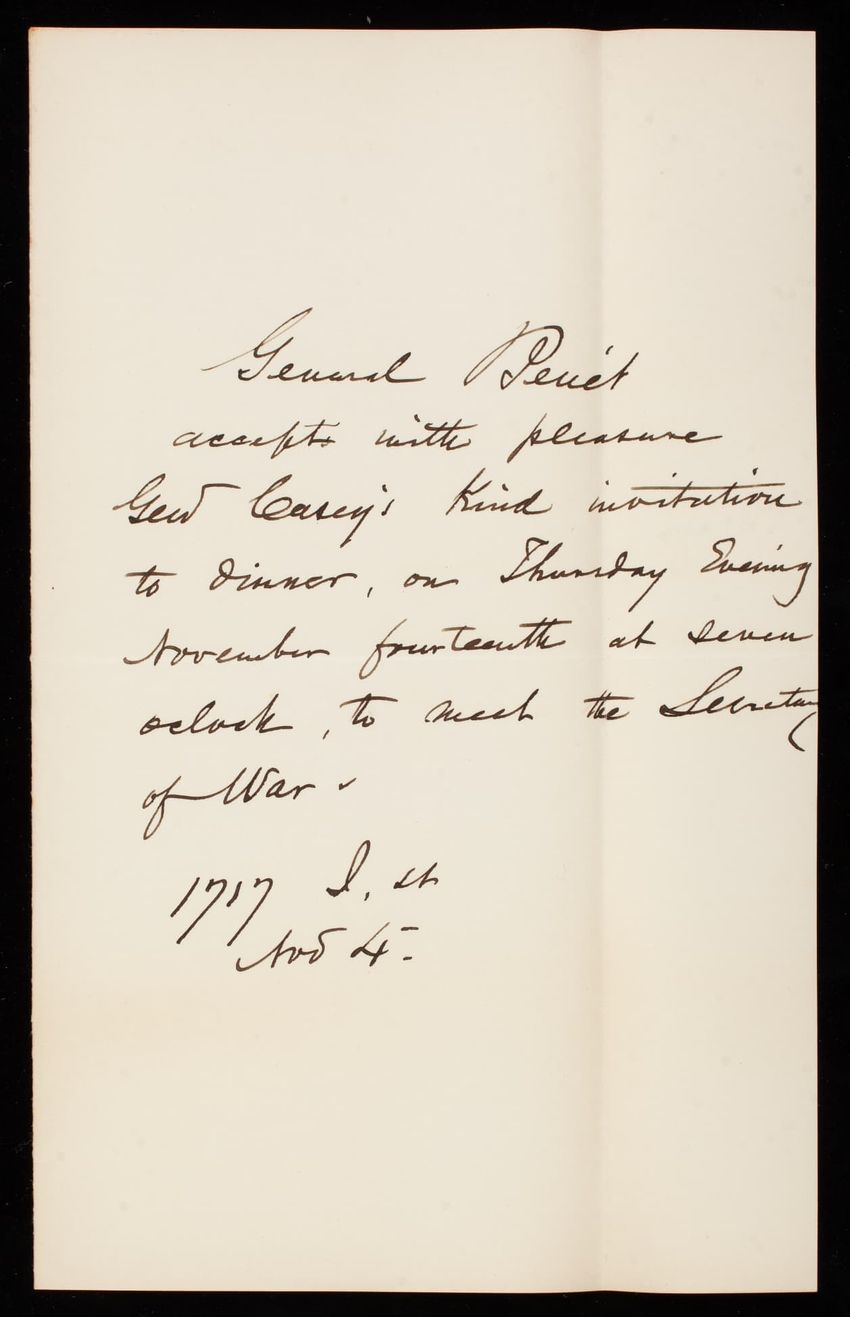 General Benét
accepts with pleasure
Genl Casey's Kind invitation
to dinner, on Thursday Evening
November fourteenth at seven
oclock, to meet the Secretary
of War.
1717 I. st
Nov 4-